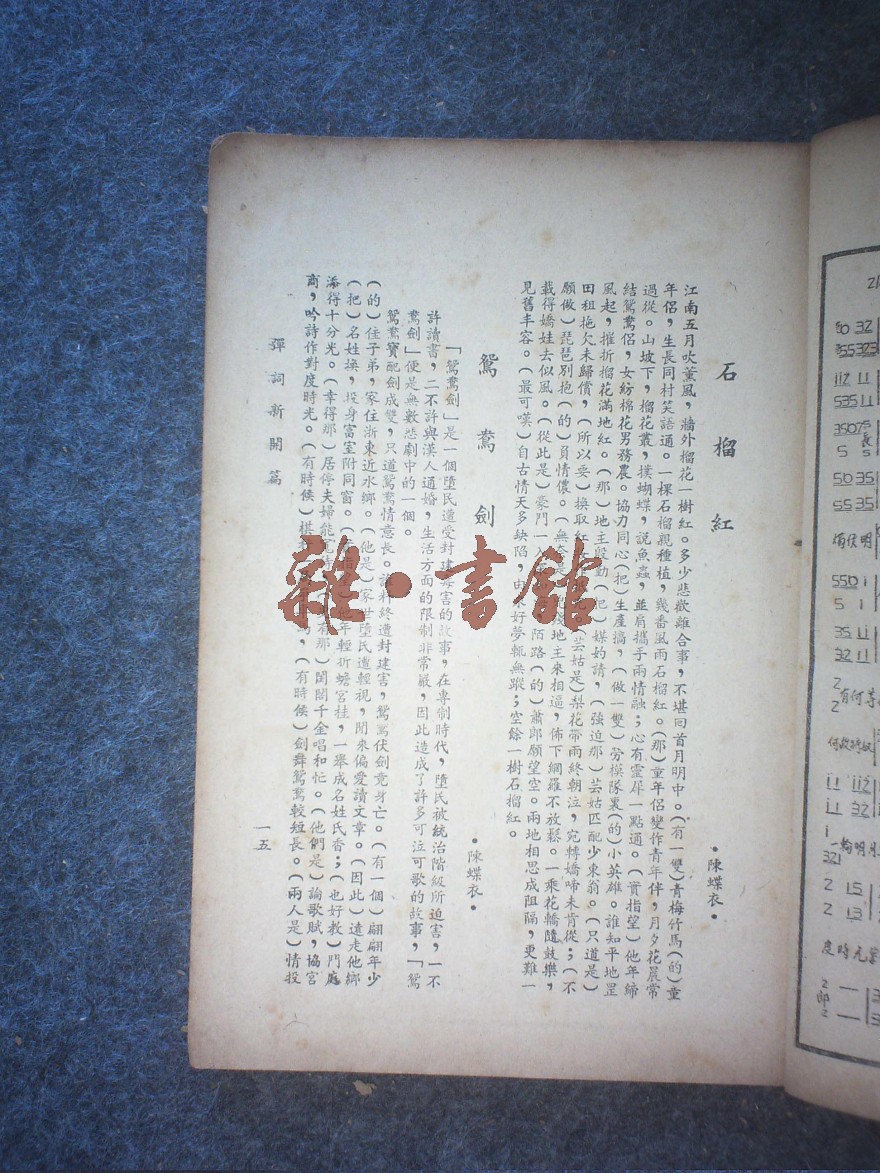 石榴紅
•陳蝶衣•
江南五月吹薰風，牆外榴花一樹紅。多少悲歡離合事，不堪回首月明中。（有一雙）青梅竹馬（的）童
年侶，生長同村笑語通。一棵石榴親種植，幾番風雨石榴紅。（那）童年侶變作青年伴，月夕花晨常
過從。山坡下，榴花叢，撲蝴蝶，說魚蟲，並肩攜手兩情融；心有靈犀一點通。（實指望）他年締
結鴛鴦侶，女紡棉花男務農。協力同心（把）生產搞，（做一雙）勞模隊裏（的）小英雄。誰知平地罡
風起，摧折榴花滿地紅。（那）地主殷勤（把）媒妁請，（強迫那）芸姑匹配少東翁。（只道是）
田租拖欠未歸償，（所以要）換取紅（芸姑是）梨花帶雨終朝泣，宛轉嬌啼未肯從；（不
願做）琵琶別抱（的）負情儂。（無奈地主來相逼，佈下網羅不放鬆。一乘花轎隨鼓樂，
載得嬌娃去似風。（從此是）豪門一入陌路（的）蕭郎願望空。兩地相思成阻隔，更難一
見舊丰容。（最可嘆）自古情天多缺陷，由來好夢輒無蹤；空餘一樹石榴紅。
鴛鴦劍
•陳蝶衣•
「鴛鴦劍」是一個墮民遭受封建毒害的故事，在專制時代，墮民被統治階級所迫害，一不
許讀書，二不許與漢人通婚，生活方面的限制非常嚴，因此造成了許多可泣可歌的故事，「鴛
鴦劍」便是無數悲劇中的一個。
鴛鴦寶配劍成雙，只道鴛鴦情意長。誰料終遭封建害，鴛鴦伏劍竟身亡。（有一個）翩翩年少
（的）佳子弟，家住浙東近水鄉。（他是）家世墮民遭輕視，閒來偏愛讀文章。（因此）遠走他鄉
（把）名姓換，投身富室附同窗。年輕折蟾宮桂，一舉成名姓氏香；（也好教）門庭
添得十分光。（幸得那）居停夫婦能有那）閨閣千金唱和忙。（他們是）論歌賦，協宮
商，吟詩作對度時光。（有時候）棋，（有時候）劍舞鴛鴦較短長。（兩人是）情投
彈詞新開篇
一五
雜•書館
有何
一輪明月